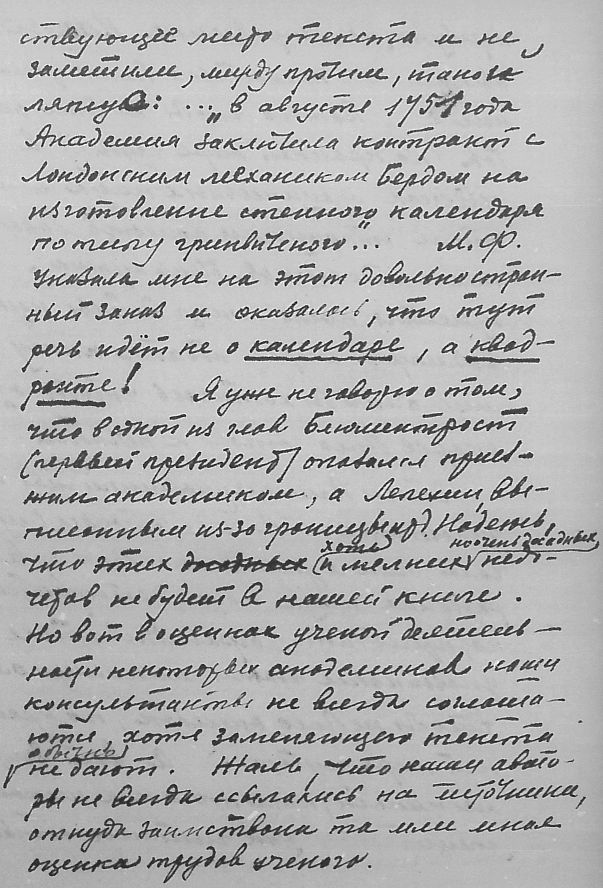 ствующие место текста и не
заметили, между прочим, такого
ляпуса: ... „в августе 1751 года
Академия заключила контракт с
Лондонским механиком Бердом на
изготовление стенного календаря
по типу гринвичского"... М.Ф.
указала мне на этот довольно стран-
ный заказ и оказалось, что тут
речь идёт не о календаре, а квад-
ранте! Я уже не говорю о том,
что в одной из глав Блюментрост
(первый президент) оказался приез-
жим академиком, а Лепехин, вы-
писанным из-за границы и т.д. Надеюсь,
хоть но очень досадных
что этих досадных и мелких недо-
четов не будет в нашей книге.
Но вот в оценках ученой деятель-
ности некоторых академиков наши
консультанты не всегда соглаша-
ются, хотя заменяющего текста
обычно
не дают. Жаль, что наши авто-
ры не всегда ссылались на источники,
откуда заимствована та или иная
оценка трудов ученого.